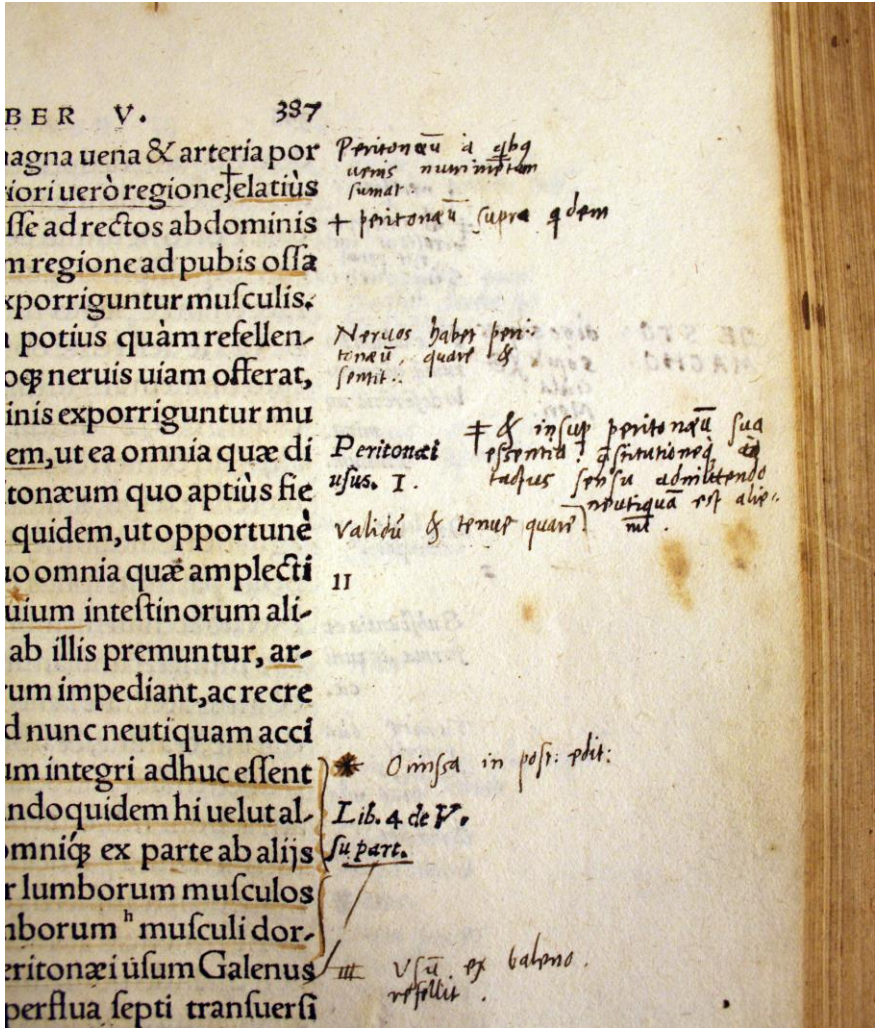 BER V. 387
agna uena & arteria por
iori uerò regione elatiùs
sse ad rectos abdominis
m regione ad pubis ossa
xporriguntur musculis.
potius quàm refellen-
oq́ neruis uiam offerat,
inis exporriguntur mu
em, ut ea omnia quæ di
tonæum quo aptiùs fie
quidem, ut opportunè
uo omnia quæ amplecti
uium intestinorum ali-
ab illis premuntur, ar-
rum impediant, ac recre
d nunc neutiquam acci
um integri adhuc essent
ndoquidem hi uelut al-
omniq́ ex parte ab alijs
r lumborum musculos
mborum h musculi dor-
eritonæi usum Galenus
perflua septi transuersi
Peritonæū à
uenis
sumat.
+ peritonæū supra
Neruos habet peri-
tonæū, quare &
sentit.
Peritonæi
usus. I.
‡ & insup peritonæū sua
essentia
tactus sensu admittendo
neutiquā est alie-
Validū & tenue quare
II
* Omissa in post: edit:
Lib. 4 de V.
su part.
Vsū ex Galeno
refellit.